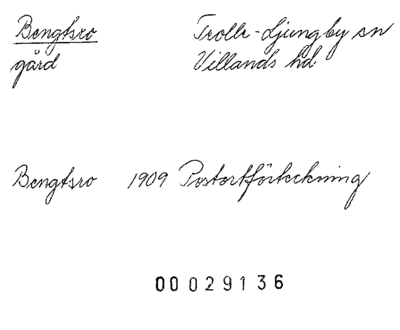 Bengtsro Trolle-Ljungby sn
gård Villands hd
Bengtsro 1909 Postortförteckning
00029136